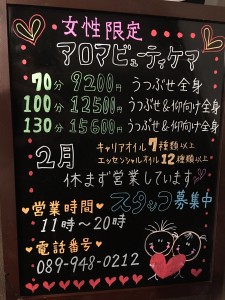 女性限定
アロマビューティケア
70分 9200円 うつぶせ全身
100分 12500円 うつぶせ&仰向け全身
130分 15600円 うつぶせ&仰向け全身
2月 キャリアオイル7種類以上
エッセンシャルオイル12種類以上
休まず営業しています
スタッフ募集中
営業時間
11時〜20時
電話番号
089-948-0212